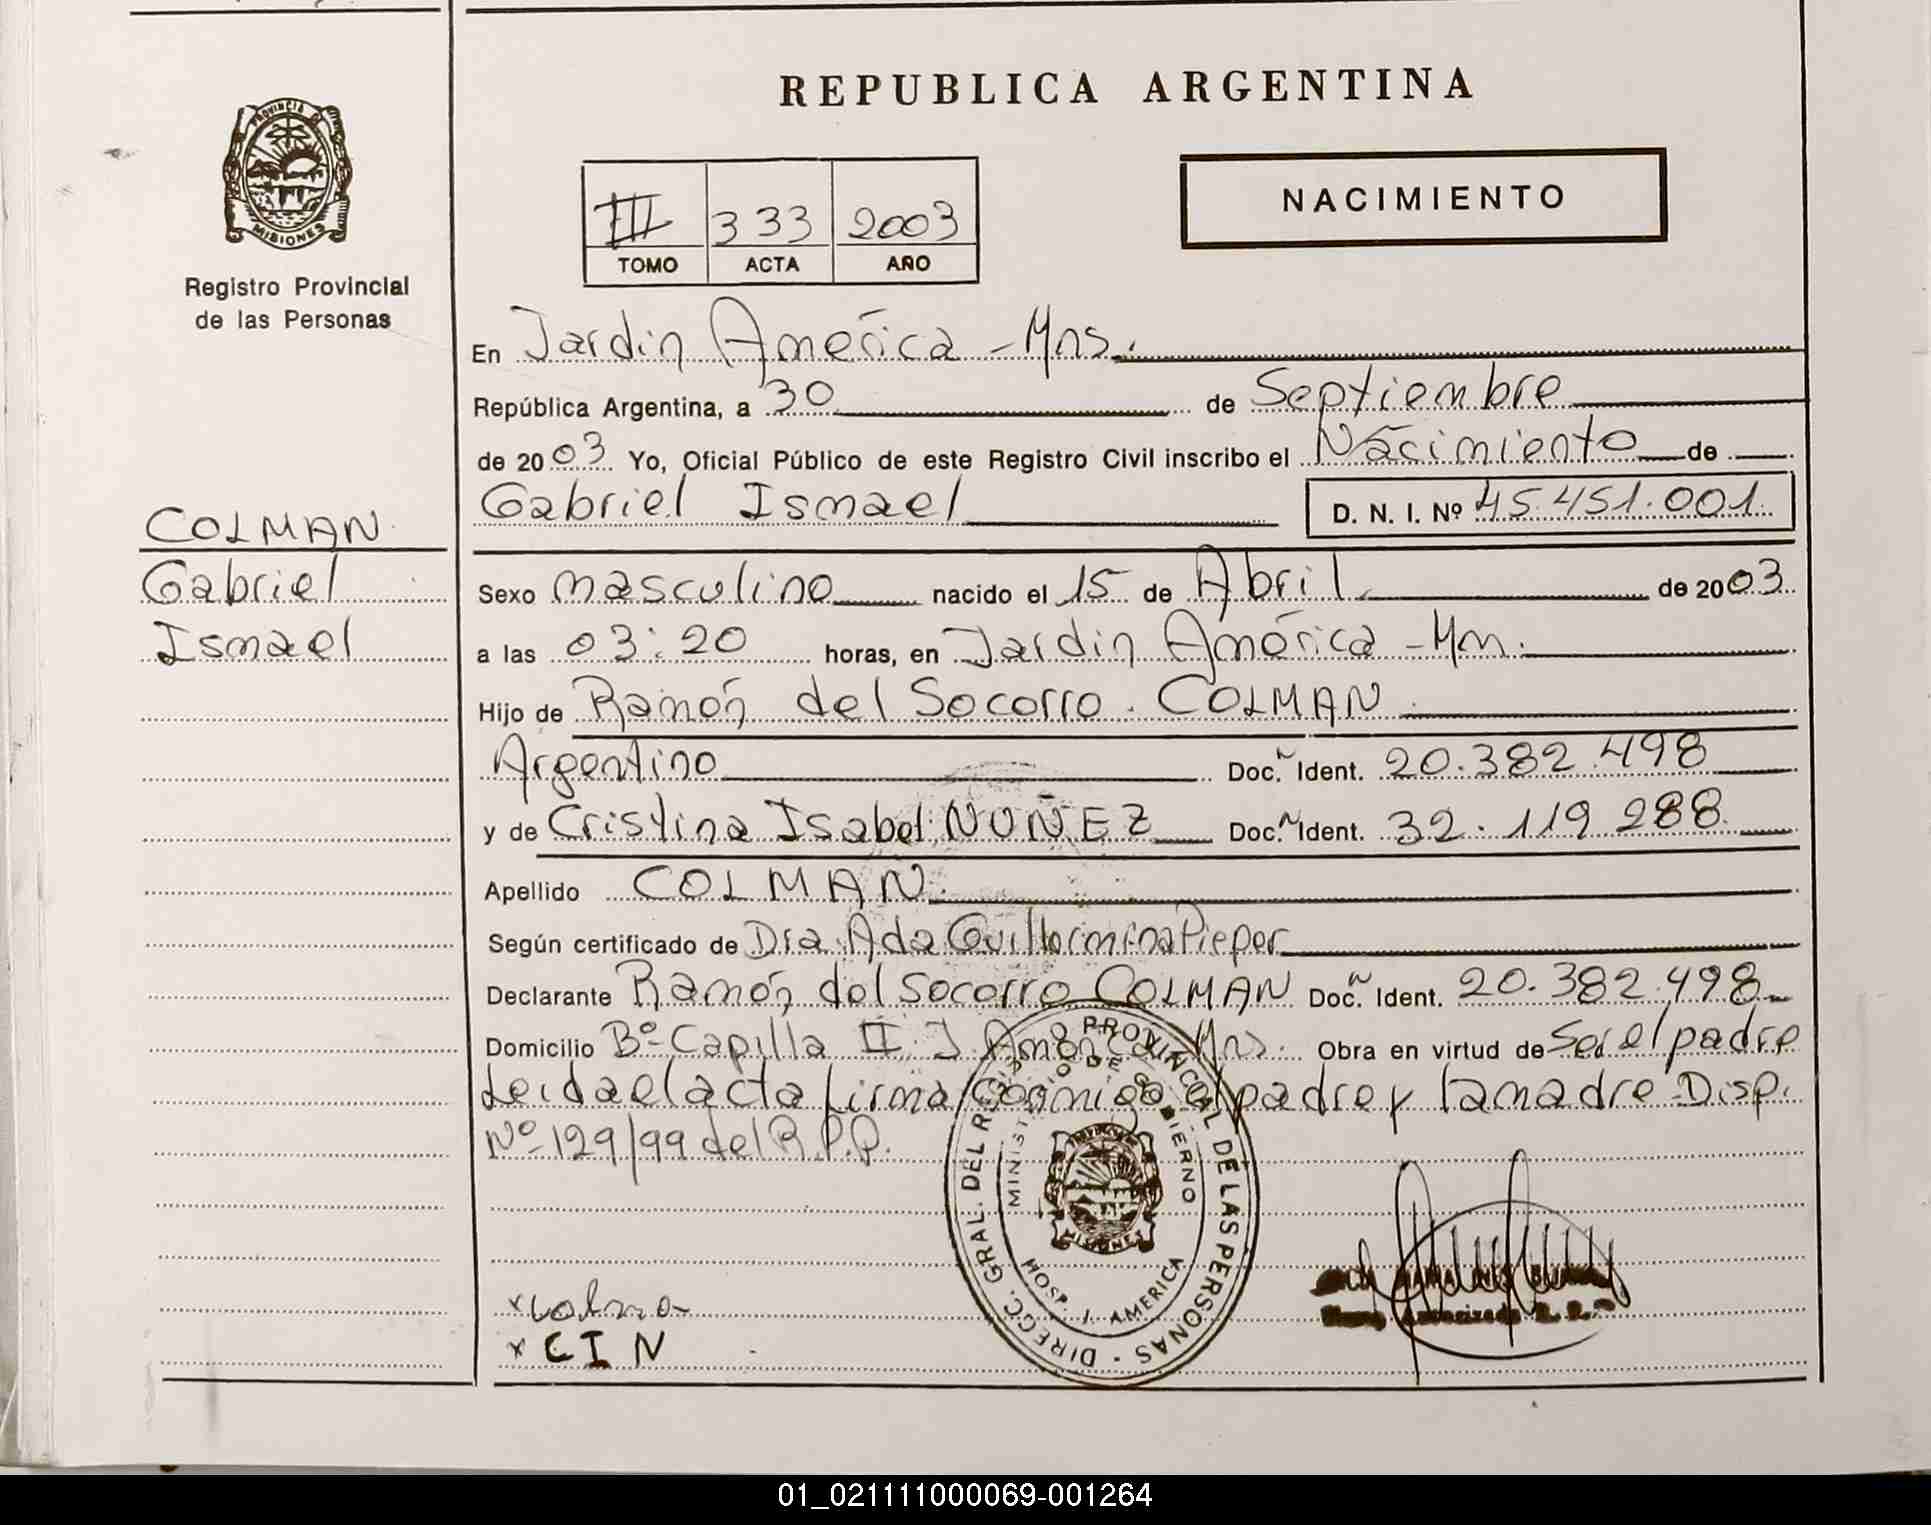 REPUBLICA ARGENTINA
PROVINCIA DE
MISIONES
Registro Provincial
de las Personas
III 333 2003
TOMO ACTA AÑO
NACIMIENTO
En Jardin América - Mns.
República Argentina, a 30 de Septiembre
de 2003 Yo, Oficial Público de este Registro Civil inscribo el Nacimiento de
Gabriel Ismael D. N. I. Nº 45.451.001.
COLMAN
Gabriel
Ismael
Sexo masculino nacido el 15 de Abril de 2003
a las 03:20 horas, en Jardin América - Mn.
Hijo de Ramón del Socorro COLMAN
Argentino Doc. Ident. 20.382.498
y de Cristina Isabel NUÑEZ Doc. Ident. 32.119.288
Apellido COLMAN.
Según certificado de Dra. Ada Guillermina Pieper
Declarante Ramón del Socorro COLMAN Doc. Ident. 20.382.498
Domicilio Bº Capilla II J. América Mns. Obra en virtud de Ser el padre
Leida el acta firma conmigo el padre y la madre Disp.
Nº 129/99 del R.P.P.
DIRECC. GRAL. DEL REGISTRO PROVINCIAL DE LAS PERSONAS
MINISTERIO DE GOBIERNO
MISIONES
HOSP. J. AMERICA
x CIN
01_021111000069-001264